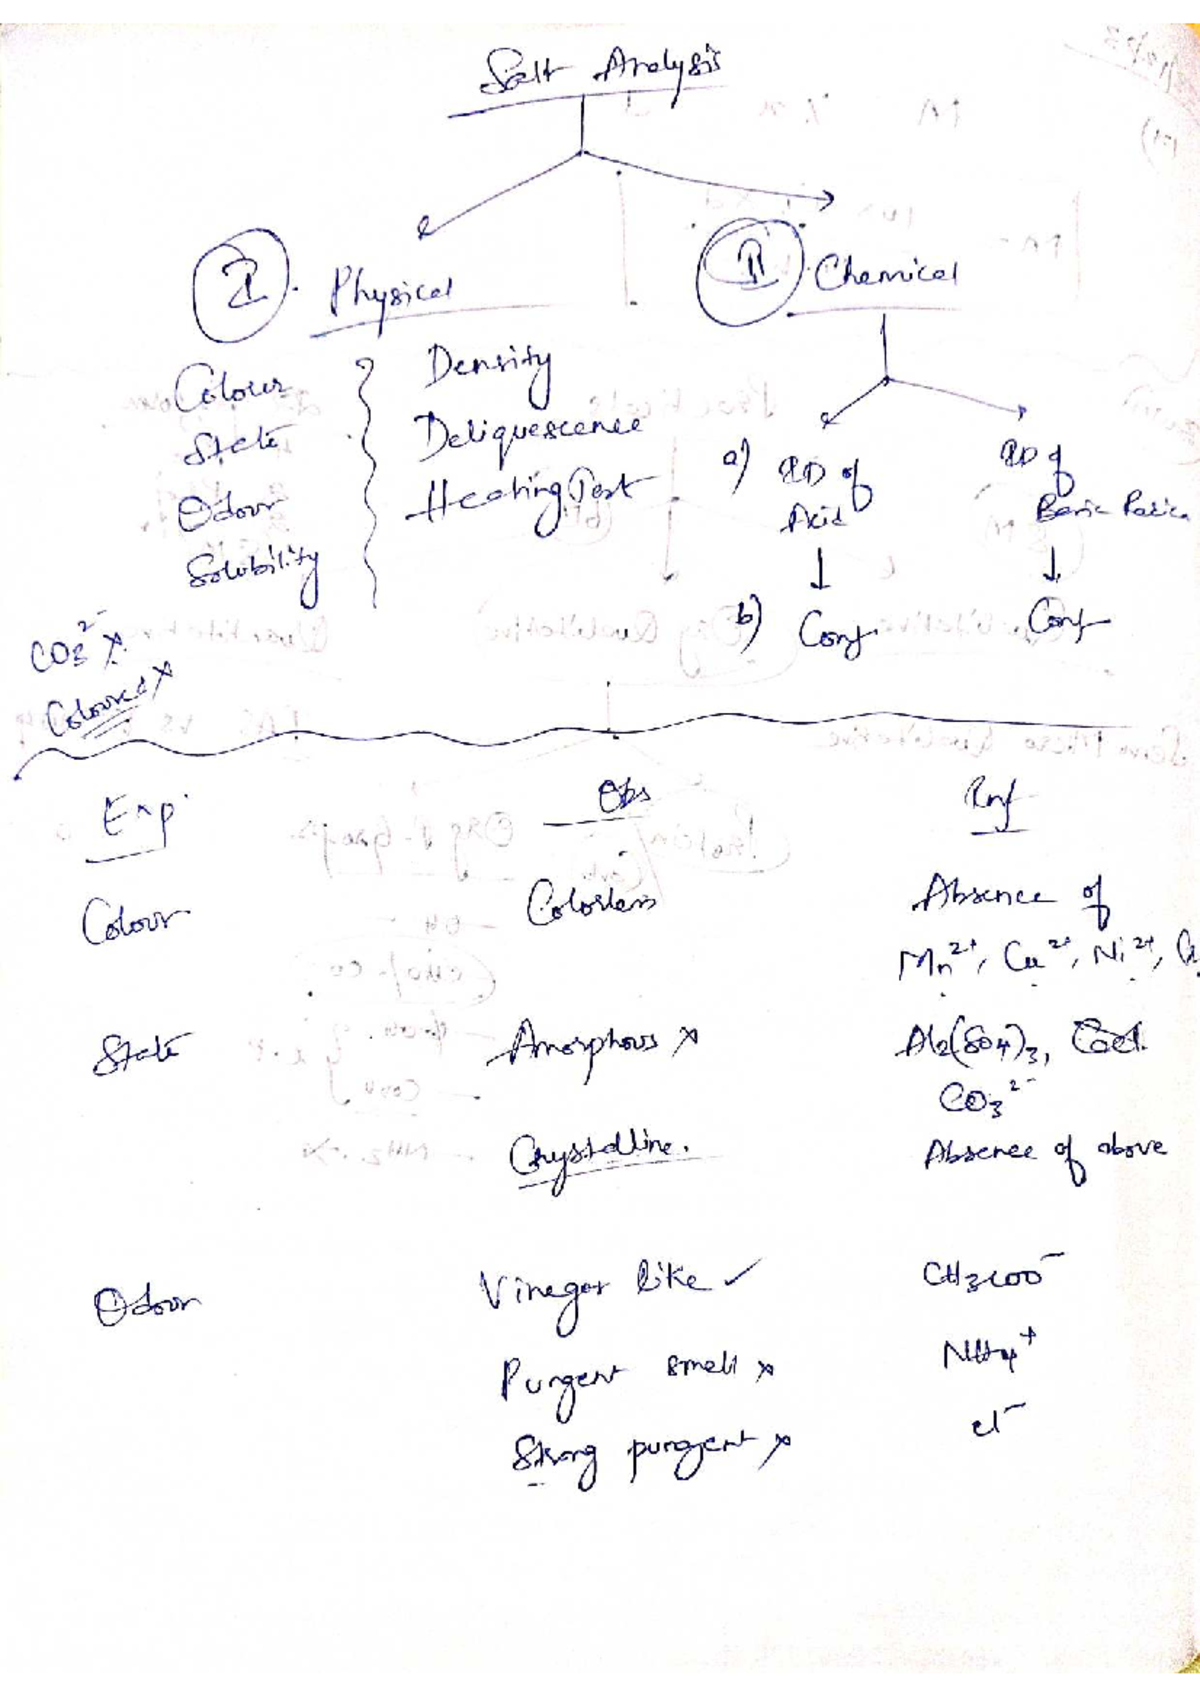 Salt Analysis
I. Physical
II. Chemical
Colour
State
Odour
Solubility
Density
Deliquescence
Heating Test
a) ID of Acid
ID of Basic
b) Conf
Conf
CO3²⁻ x
Coloured x
Exp. Obs Inf
Colour Colorless Absence of
Mn²⁺, Cu²⁺, Ni²⁺,
State Amorphous x Al2(SO4)3,
CO3²⁻
Crystalline. Absence of above
Odour Vinegar like ✓ CH3COO⁻
Pungent smell x NH4⁺
Strong pungent x Cl⁻